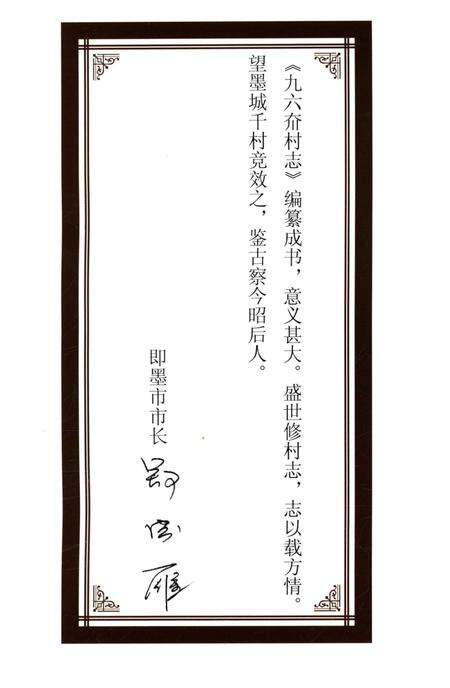 《九六夼村志》编纂成书，意义甚大。盛世修村志，志以载方情。
望墨城千村竞效之，鉴古察今昭后人。
即墨市市长